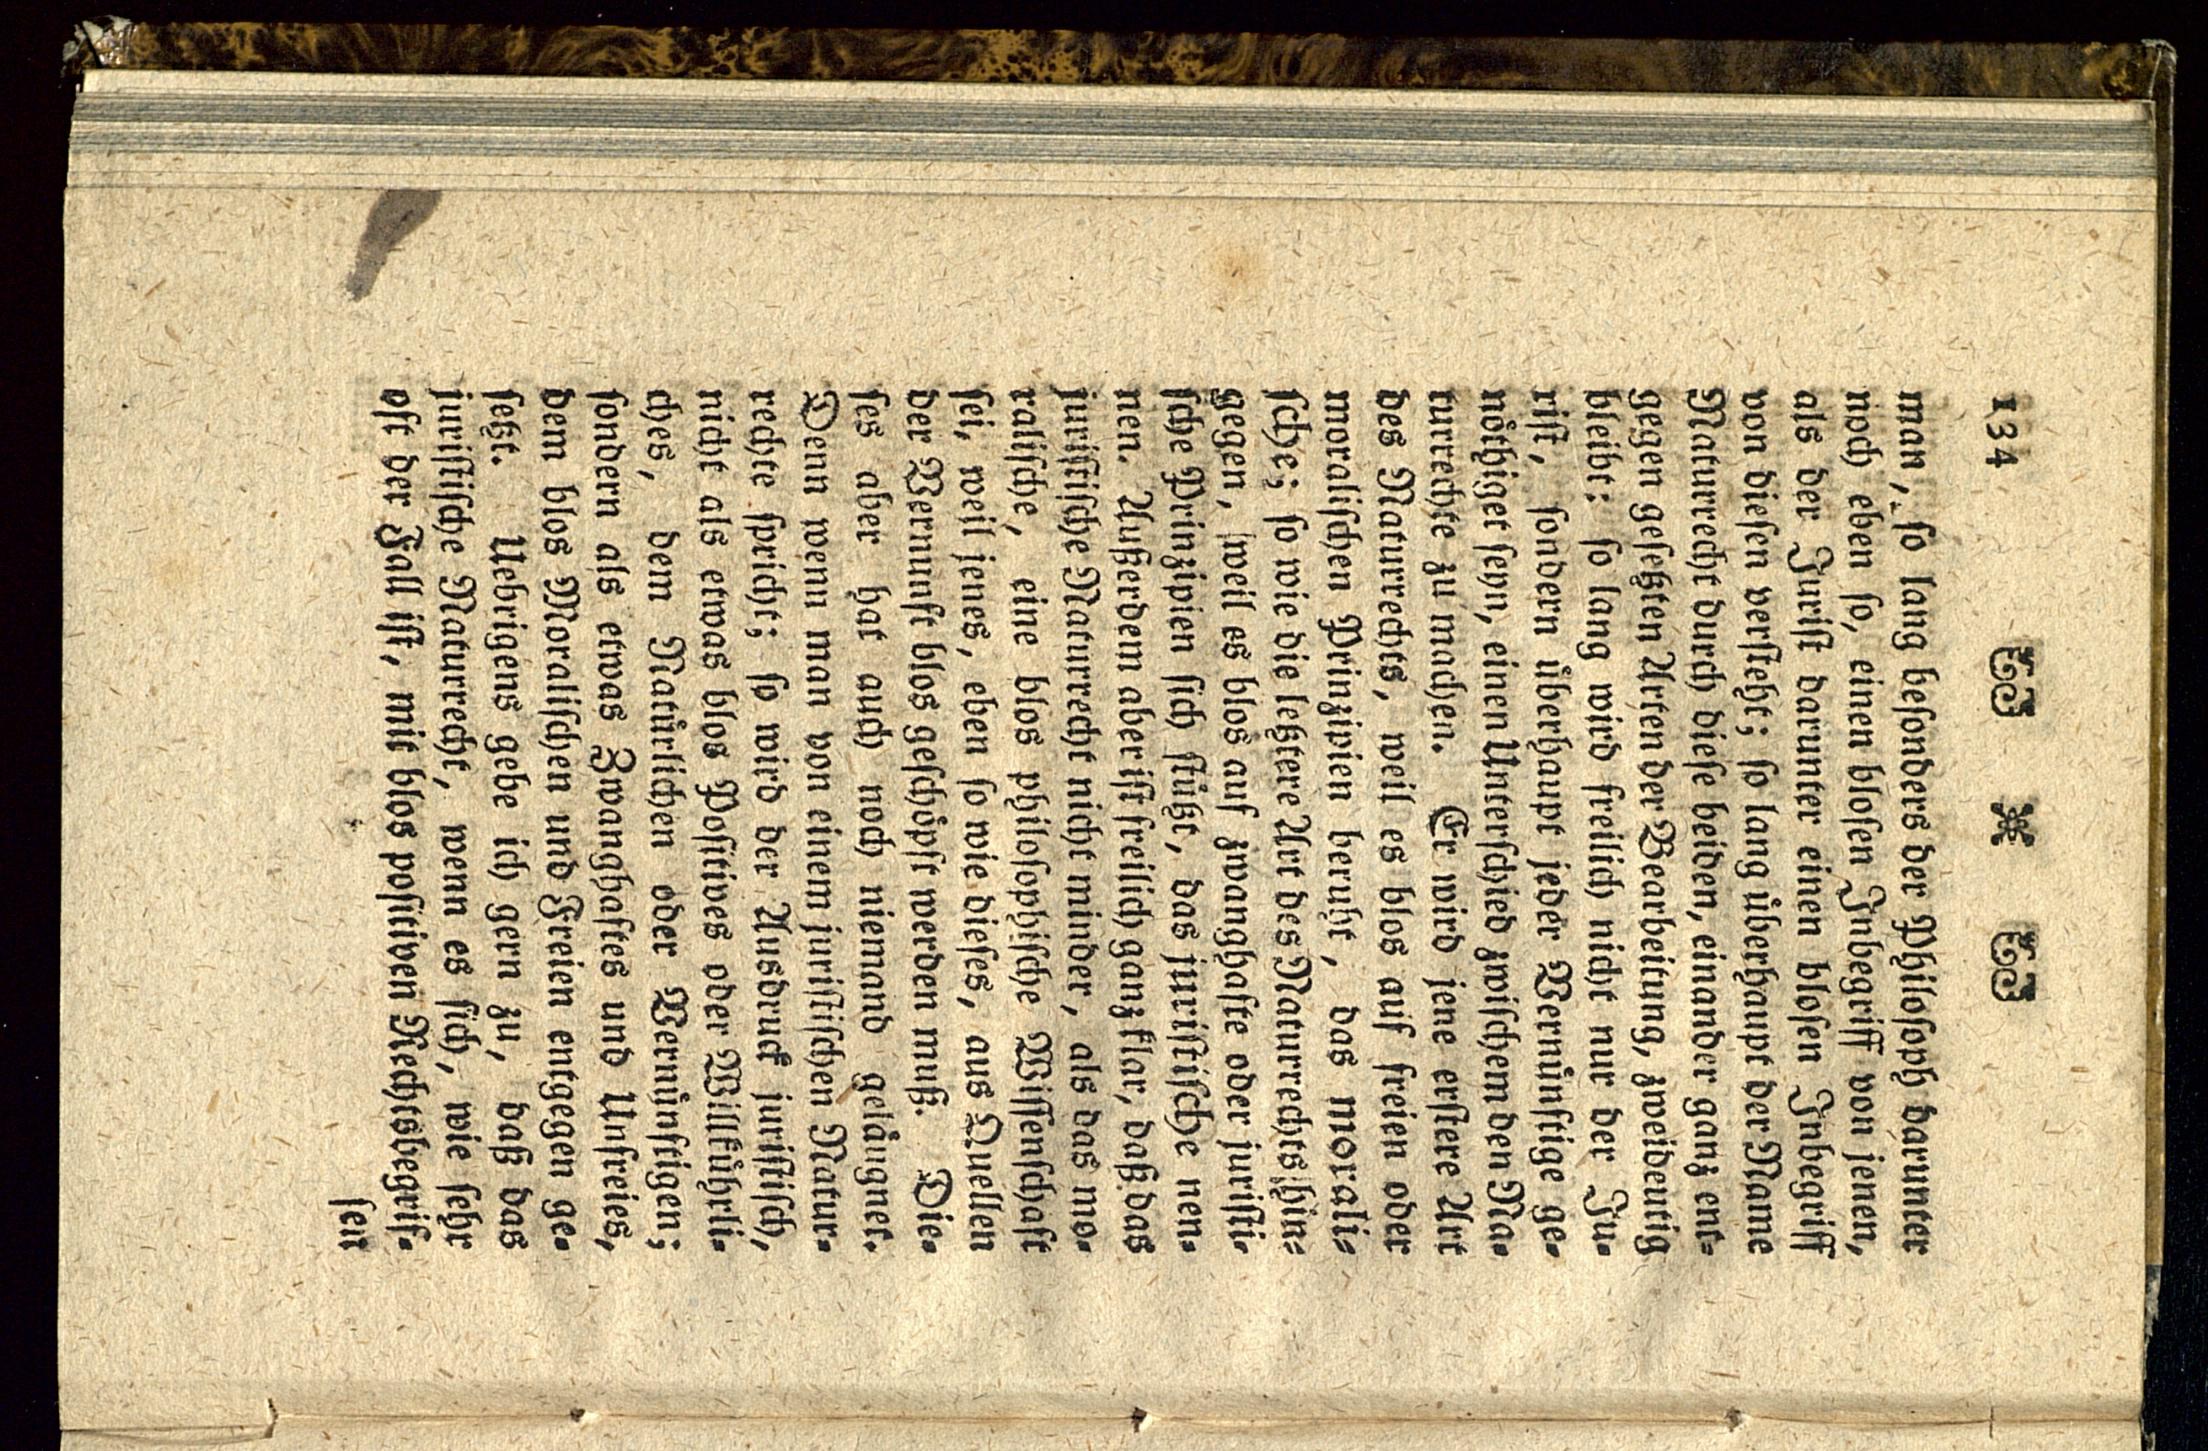 134
man, so lang besonders der Philosoph darunter
noch eben so, einen blosen Inbegriff von jenen,
als der Jurist darunter einen blosen Inbegriff
von diesen versteht; so lang überhaupt der Name
Naturrecht durch diese beiden, einander ganz ent-
gegen gesetzten Arten der Bearbeitung, zweideutig
bleibt: so lang wird freilich nicht nur der Ju-
rist, sondern überhaupt jeder Vernünftige ge-
nöthiget seyn, einen Unterschied zwischem den Na-
turrechte zu machen. Er wird jene erstere Art
des Naturrechts, weil es blos auf freien oder
moralischen Prinzipien beruht, das morali-
sche; so wie die letztere Art des Naturrechts hin-
gegen, weil es blos auf zwanghafte oder juristi-
sche Prinzipien sich stützt, das juristische nen-
nen. Außerdem aber ist freilich ganz klar, daß das
juristische Naturrecht nicht minder, als das mo-
ralische, eine blos philosophische Wissenschaft
sei, weil jenes, eben so wie dieses, aus Quellen
der Vernunft blos geschöpft werden muß. Die-
ses aber hat auch noch niemand geläugnet.
Denn wenn man von einem juristischen Natur-
rechte spricht; so wird der Ausdruck juristisch,
nicht als etwas blos Positives oder Willkührli-
ches, dem Natürlichen oder Vernünftigen;
sondern als etwas Zwanghaftes und Unfreies,
dem blos Moralischen und Freien entgegen ge-
setzt. Uebrigens gebe ich gern zu, daß das
juristische Naturrecht, wenn es sich, wie sehr
oft der Fall ist, mit blos positiven Rechtsbegrif-
fen